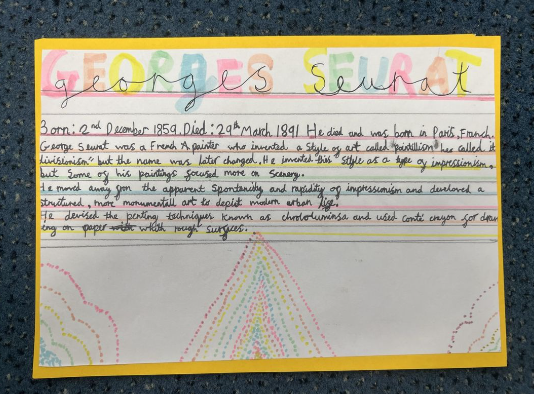 GEORGES SEURAT
georges Seurat
Born: 2nd December 1859. Died: 29th March 1891 He died and was born in Paris, French.
George Seurat was a French A painter who invented a style of art called "pointillism" he called it
divisionism" but the name was later changed. He invented this style as a type of impressionism,
but some of his paintings focused more on scenery.
He moved away from the apparent spontaneity and rapidity of impressionism and developed a
structured, more monumentall art to depict modern urban life.
He devised the penting techniques known as chroloruminsa and used conté crayon for draw
eng on paper with which rough surfaces.